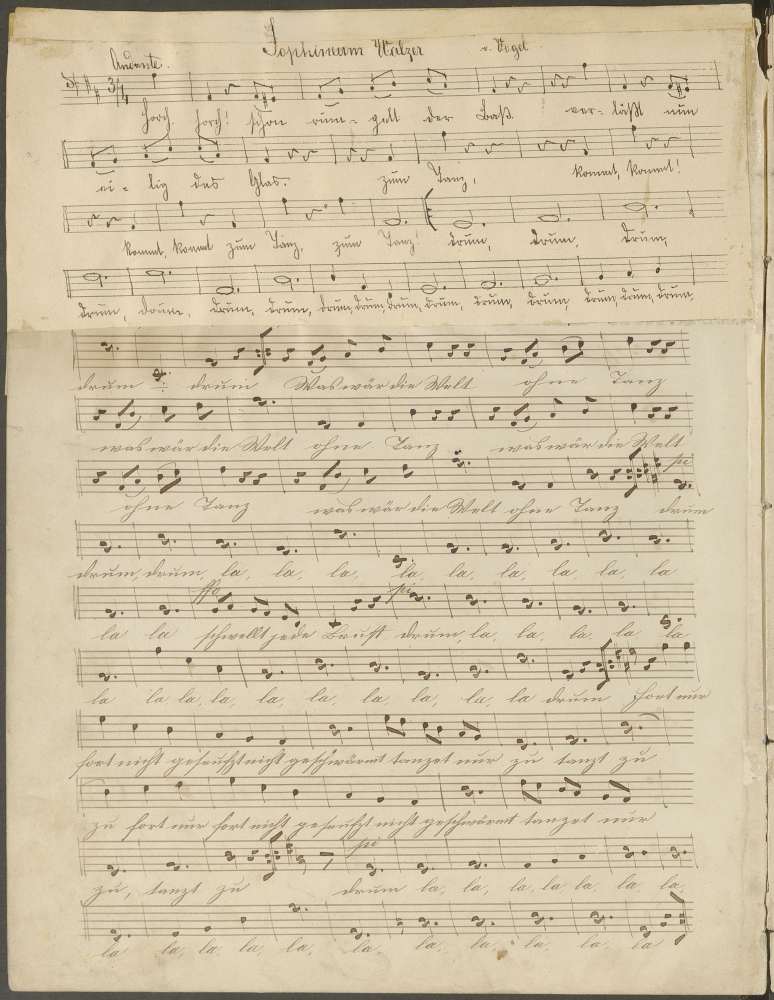 Sophinum Walzer v. Vogel
Andante.
3/4
Horch horch! schon rum-gelt der Baß ver-läßt nun
ei-lig das Glas. zum Tanz, kommt, kommt!
kommt, kommt zum Tanz, zum Tanz! drum, drum, drum,
drum, drum, drum, drum, drum, drum, drum, drum, drum, drum, drum, drum, drum,
drum drum Was wär die Welt ohne Tanz
was wär die Welt ohne Tanz was wär die Welt
pi
ohne Tanz was wär die Welt ohne Tanz drum
drum, drum, la, la, la, la, la, la, la, la, la
ffo pi
la la schwellt jede Brust drum, la, la, la, la la
la la la, la, la, la, la, la, la, la drum fort nur
fort nicht geseufzt nicht geschwärmt tanzet nur zu tanzt zu
zu fort nur fort nicht geseufzt nicht geschwärmt tanzet nur
pi
zu, tanzt zu drum la, la, la, la la, la, la,
la la, la, la, la, la, la, la, la, la, la